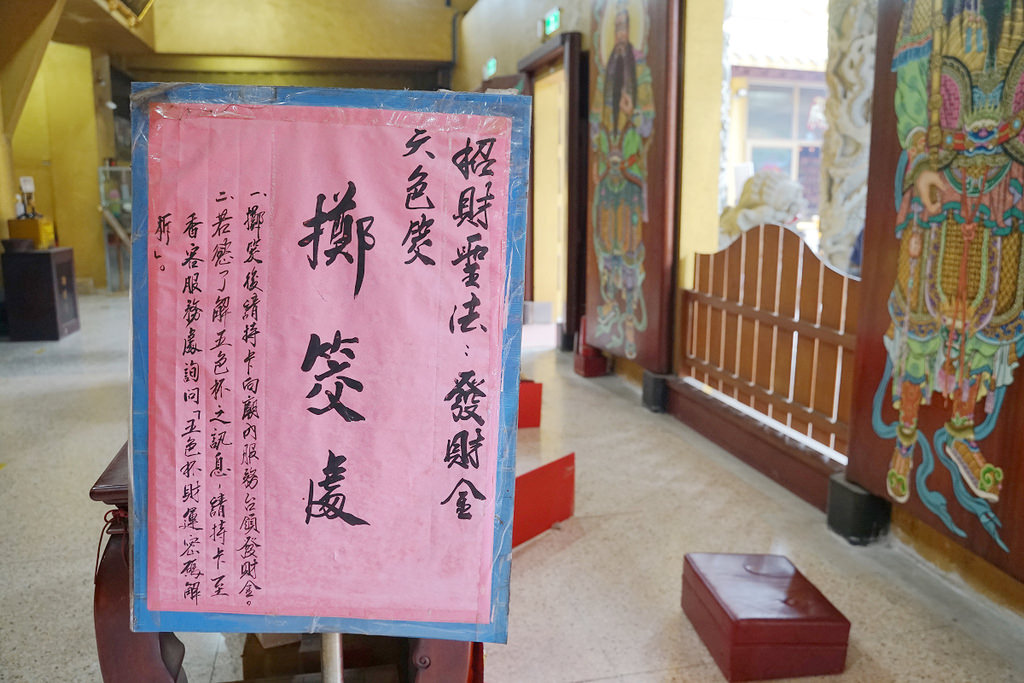 招財聖法：發財金
六色筊
擲筊處
一、擲筊後請持卡向廟內服務台領發財金。
二、若慾了解五色杯之訊息，請持卡至
香客服務處詢問「五色杯財運密碼解
析」。